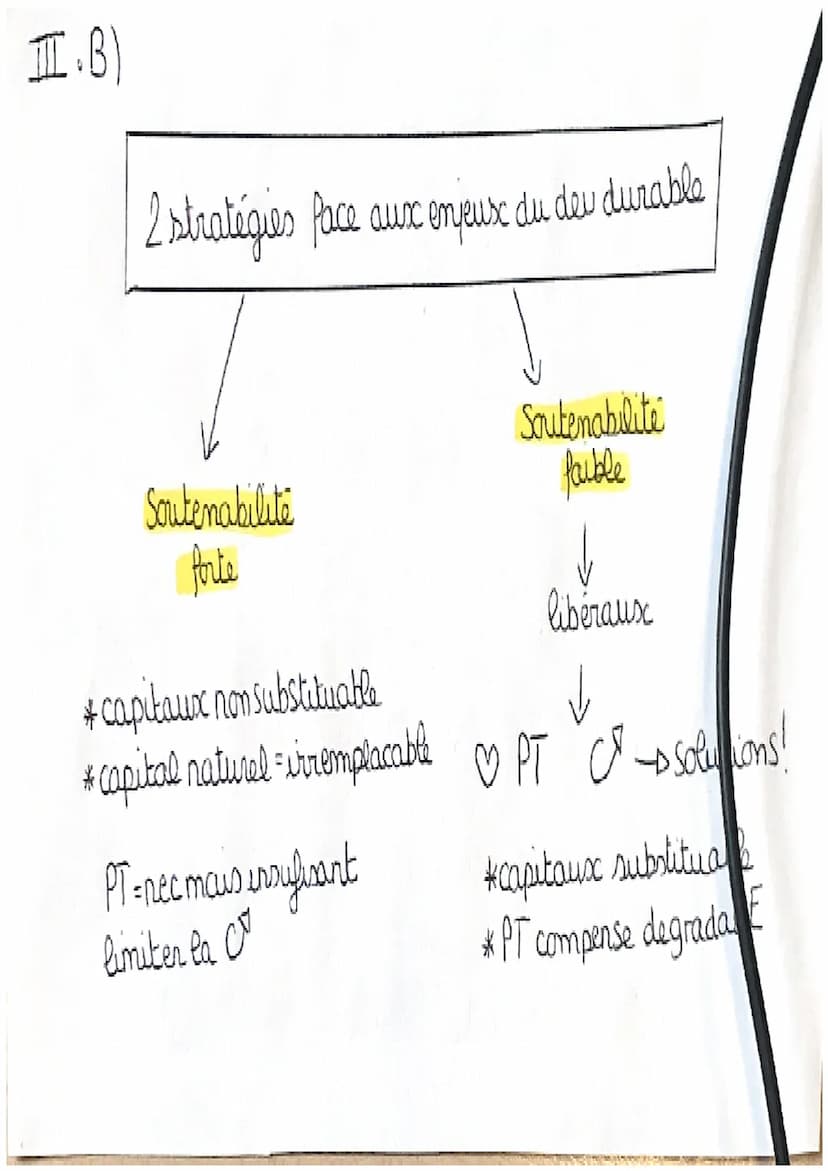 III.B)
2 stratégies face aux enjeux du dev durable
Soutenabilité
forte
*capitaux non substituable
*capital naturel = irremplacable
PT = nec mais insufisant
limiter la ♂
Soutenabilité
faible
libéraux
♡ PT ♂ → solutions!
*capitaux substituable
*PT compense degrada E